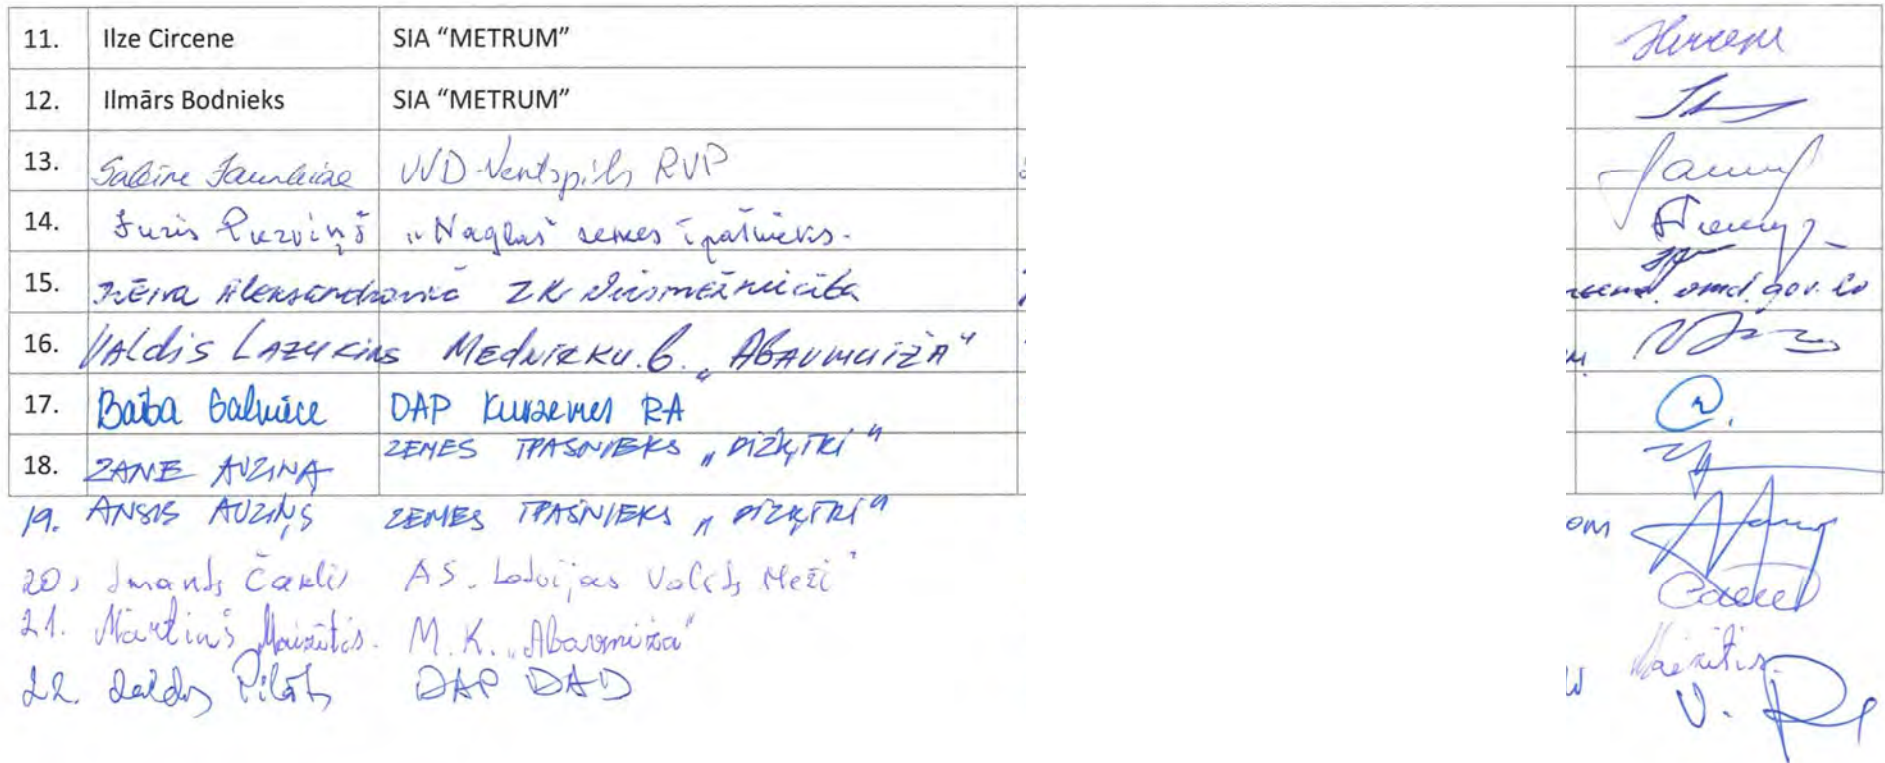 11. Ilze Circene SIA "METRUM"
12. Ilmārs Bodnieks SIA "METRUM"
13. Sabīne Jaunbirze VVD Ventspils RVP
14. Juris Purviņš „Naglas" zemes īpašnieks.
15. Aleksandroviča ZK Virsmežniecība
vmd.gov.lv
16. Valdis Lazukins Mednieku b. „Abavmuiža"
17. Baiba Galniece DAP Kurzemes RA
18. ZANE AUZIŅA ZEMES ĪPAŠNIEKS
19. ANSIS AUZIŅŠ ZEMES ĪPAŠNIEKS
om
20. Imants Čaklis AS. Latvijas Valsts Meži"
21. Mārtiņš Maizītis. M.K. „Abavmuiža"
Maizītis.
22. Valdis Pilāts DAP DAD